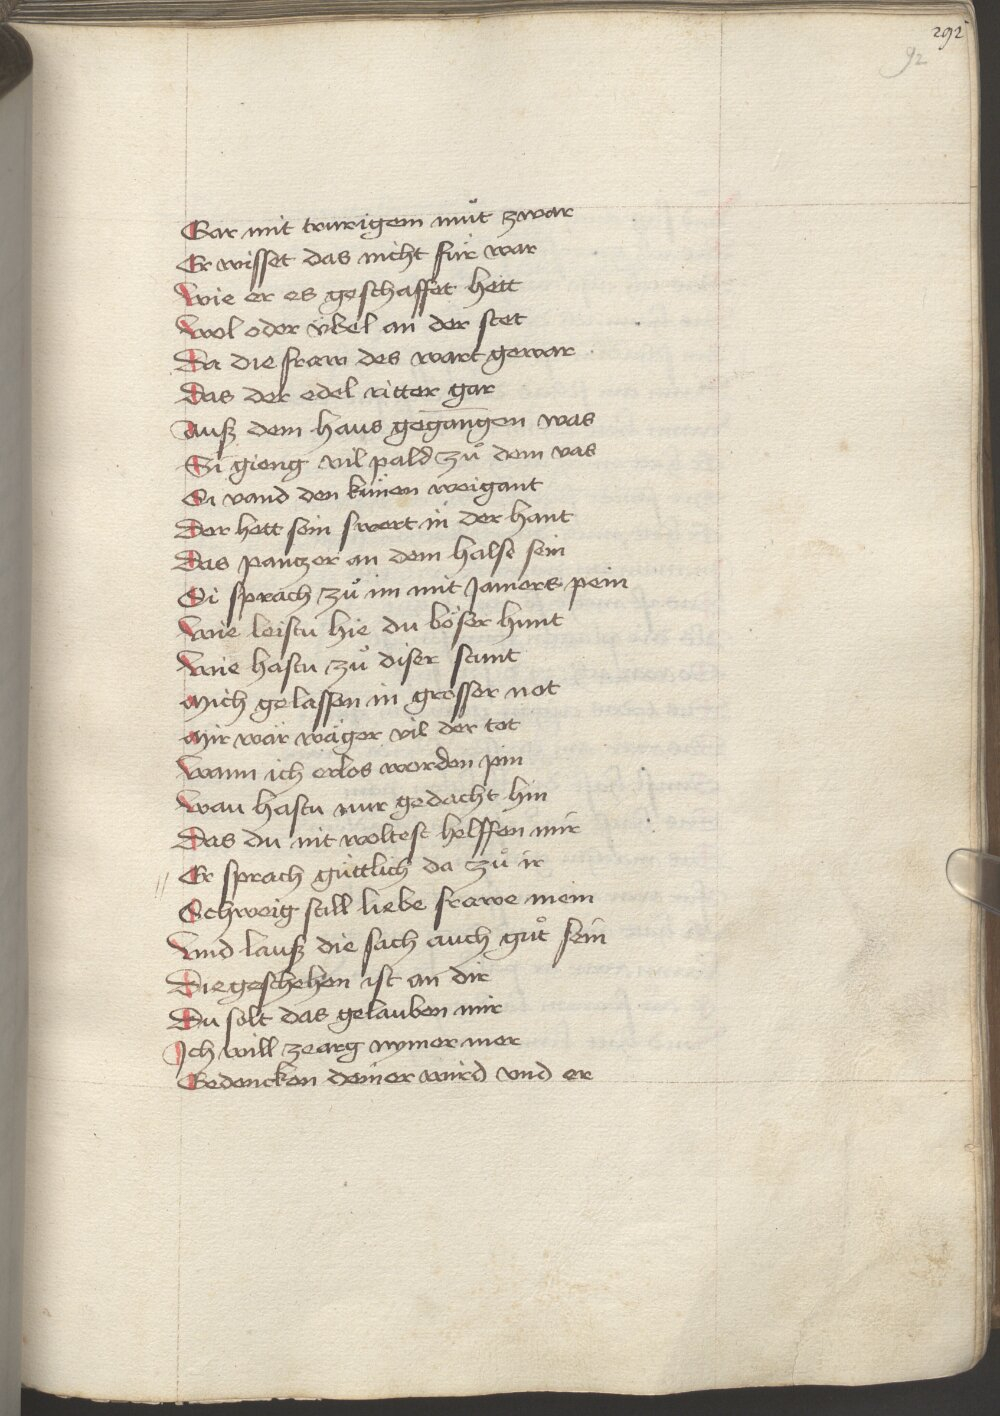 292
92
Gar mit trurigem muͦt zwar
Er wisset das nicht für war
Wie er es geschaffet hett
Wol oder übel an der stet
Da die fraw des wart gewar
Das der edel ritter gar
Auß dem haus gegangen was
Si gieng vil pald zuͦ dem vas
Si vand den künen weigant
Der hett sein swert in der hant
Das pantzer an dem halse sein
Si sprach zuͦ im mit Jamers pein
Wie leistu hie du böser hunt
Wie hastu zuͦ diser stunt
Mich gelassen in grosser not
Mir wär wäger vil der tot
Wann ich erlos worden pin
Wau hastu nur gedacht hin
Das du nit woltest helffen mir
Er sprach güttlich da zuͦ ir
Schweig still liebe frawe mein
Vnd lauß die sach auch guͦt sein
Die geschehen ist an dir
Du solt das gelauben mir
Ich will zearg nymer mer
Gedencken deiner wird vnd er